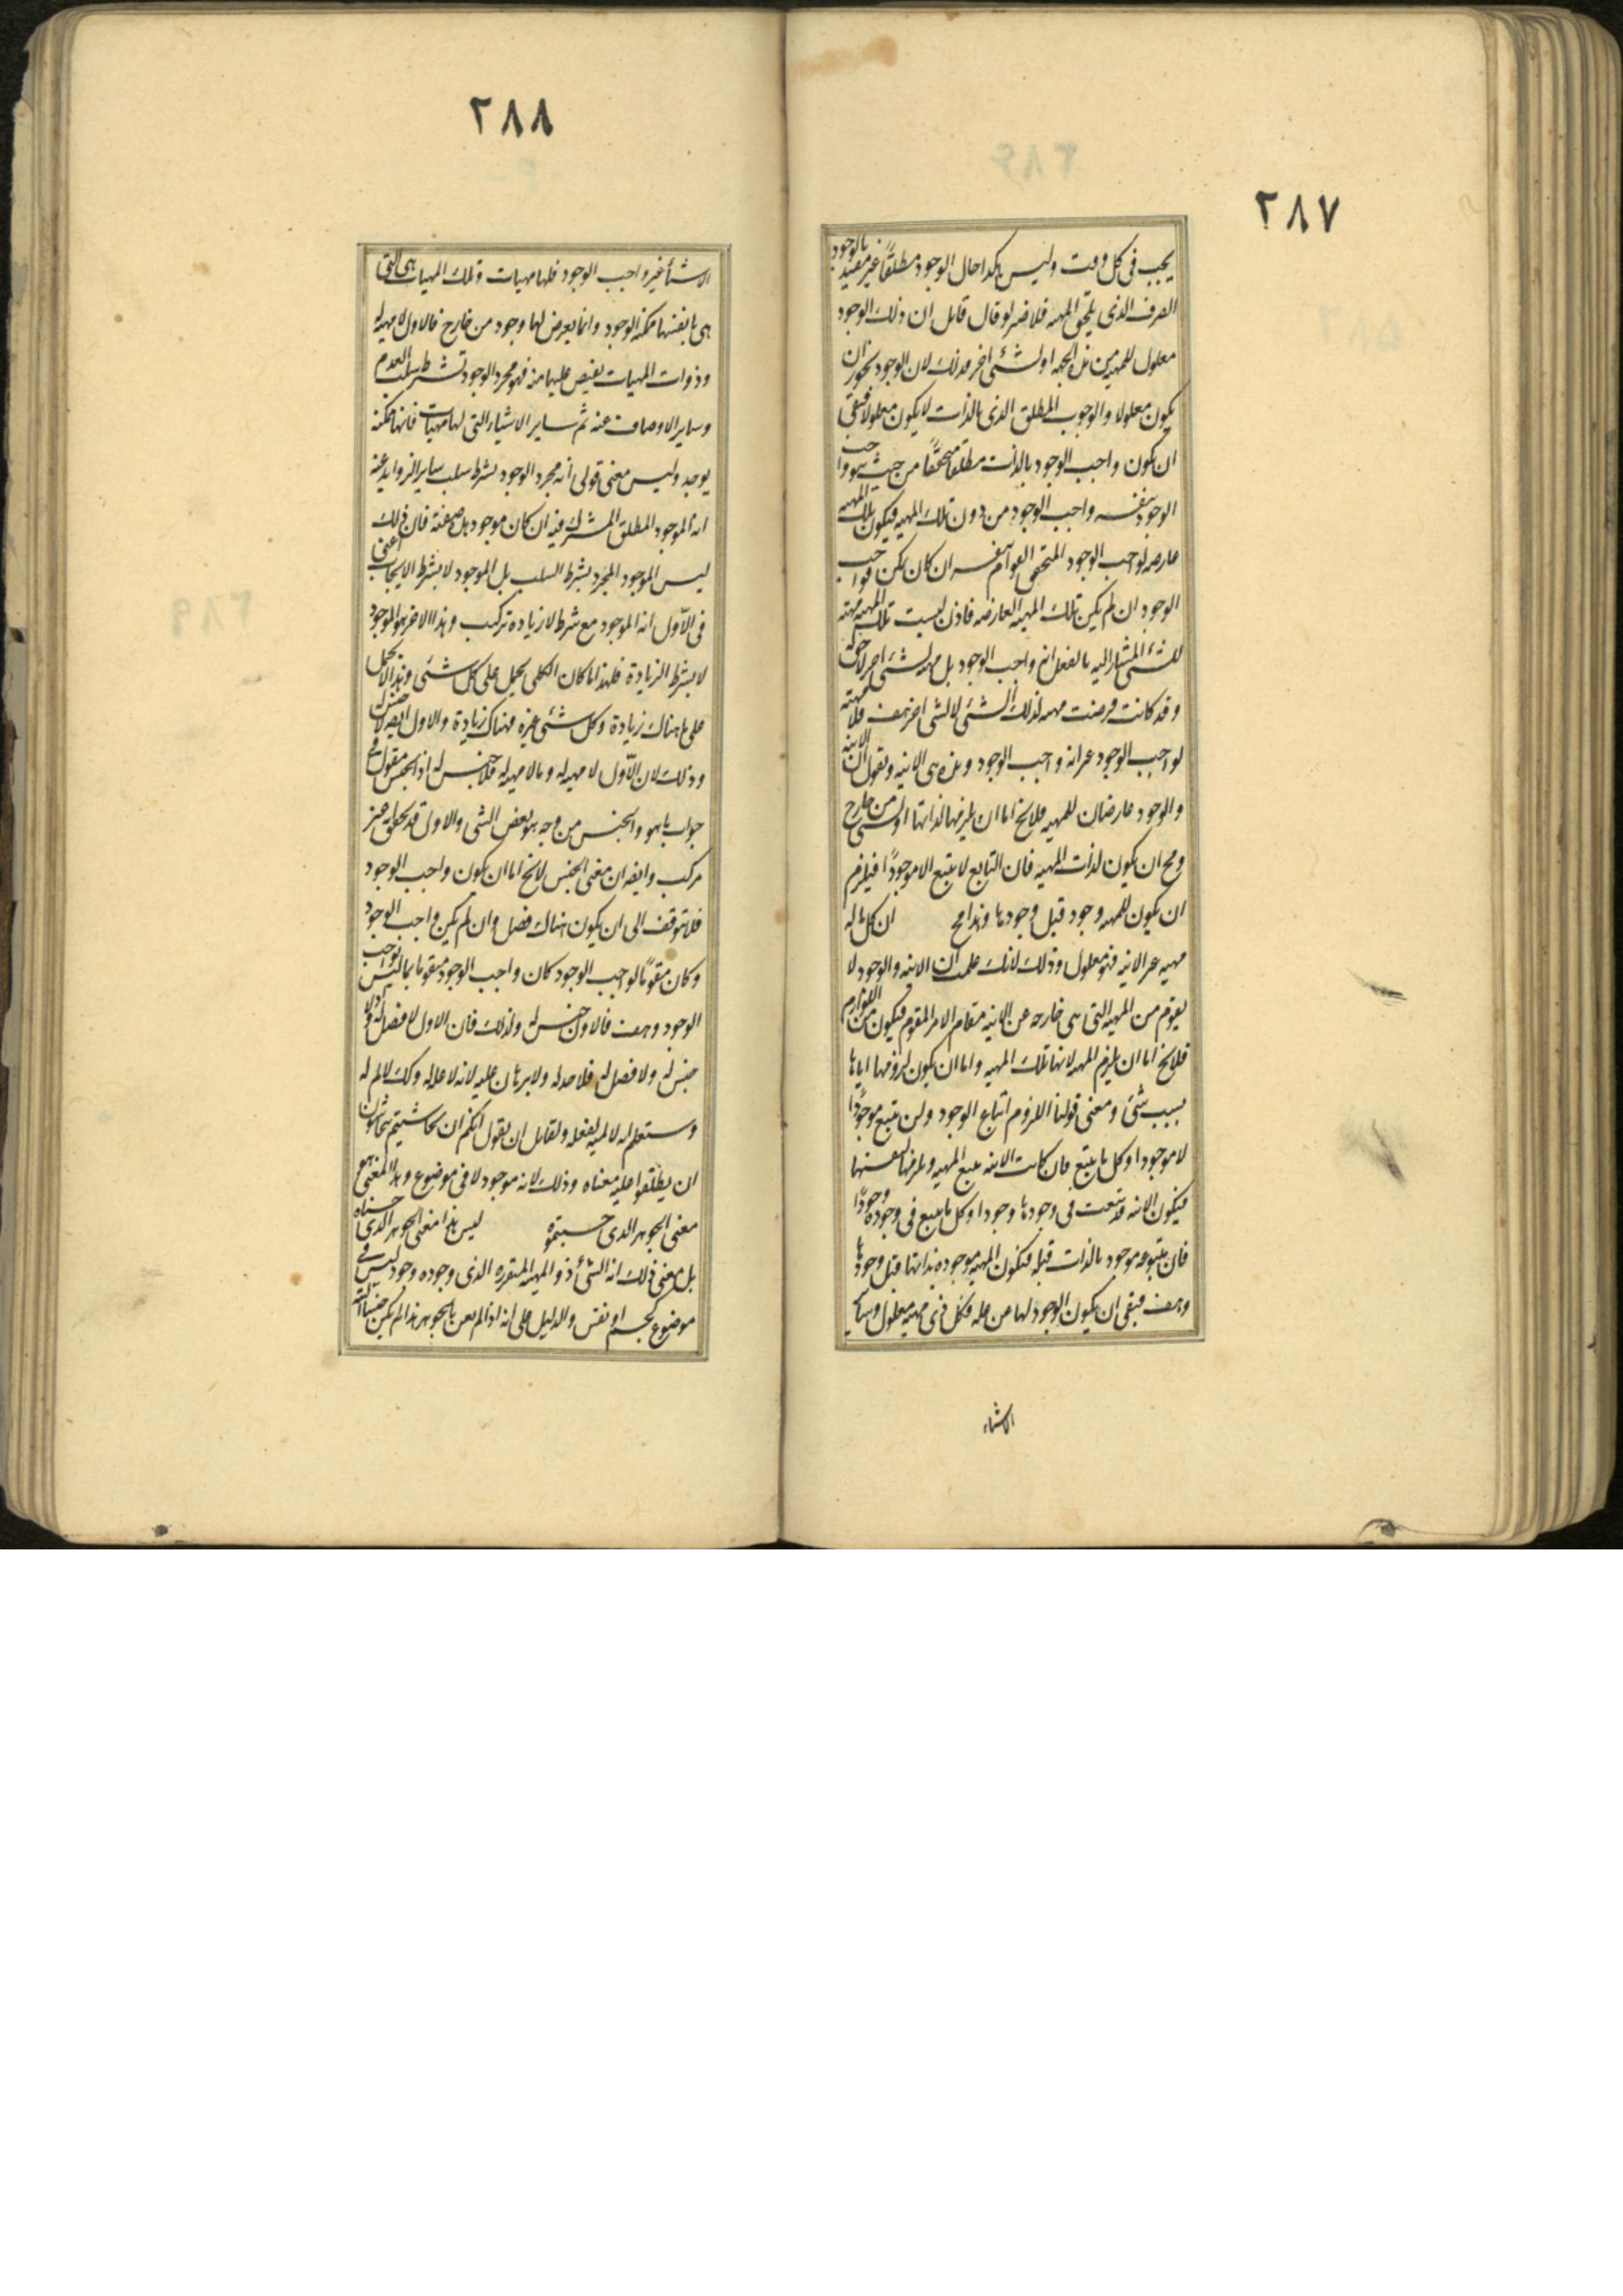 ٢٨٧
يجب فى كل وقت وليس هكذا حال الوجود مطلقًا غير مقيد بالوجود
الصرف الذى يلحق المهيه فلا ضير لو قال قايل ان ذلك الوجود
معلول للمهيه من هذه الجهه او لشئ اخر وذلك لان الوجود يجوز ان
يكون معلولا والوجوب المطلق الذى بالذات لا يكون معلولا فبقى
ان يكون واجب الوجود بالذات مطلقا متحققًا من حيث هو واجب
الوجود بنفسه واجب الوجود من دون تلك المهيه فيكون تلك المهيه
عارضه لواجب الوجود المتحقق القوام بنفسه ان كان يمكن فواجب
الوجود ان لم يكن تلك المهيه العارضه فاذن ليست تلك المهيه مهيه
للشئ المشار اليه بالفعل انه واجب الوجود بل مهيه لشئ اخر لاحق له
وقد كانت فرضت مهيه لذلك الشئ لا لشئ اخر هف فلا مهيه
لواجب الوجود غير انه واجب الوجود وهذه هى الانيه ونقول ان الانيه
والوجود عارضان للمهيه فلا يخ اما ان يلزمها لذاتها او لشئ من خارج
ومح ان يكون لذات المهيه فان التابع لا يتبع الا موجودًا فيلزم
ان يكون للمهيه وجود قبل وجودها وهذا مح ان كل ما له
مهيه غير الانيه فهو معلول وذلك لانك علمت ان الانيه والوجود لا
يقوم من المهيه التى هى خارجه عن الانيه مقام الامر المقوم فيكون من اللوازم
فلا يخ اما ان يلزم المهيه لانها تلك المهيه واما ان يكون لزومها اياها
بسبب شئ ومعنى قولنا اللزوم اتباع الوجود ولن يتبع موجودًا
لا موجودا وكل ما يتبع فان كانت الانيه يتبع المهيه ويلزمها لنفسها
فيكون الانيه قد تبعت فى وجودها وجودا وكل ما يتبع فى وجوده وجودًا
فان متبوعه موجود بالذات قبله فيكون المهيه موجوده بذاتها قبل وجودها
وهف فبقى ان يكون الوجود لها من عله فكل ذى مهيه معلول وساير
الاشياء
٢٨٨
الاشيأ غير واجب الوجود فلها مهيات وتلك المهيات هى التى
هى بانفسها ممكنه الوجود وانما يعرض لها وجود من خارج فالاول لا مهيه له
وذوات المهيات يفيض عليها منه فهو مجرد الوجود بشرط سلب العدم
وساير الاوصاف عنه ثم ساير الاشياء التى لها مهيات فانها ممكنه
يوجد وليس معنى قولى انه مجرد الوجود بشرط سلب ساير الزوايد عنه
انه الموجود المطلق المشترك فيه ان كان موجود هذه صفته فان ذلك
ليس الموجود المجرد بشرط السلب بل الموجود لا بشرط الايجاب اعنى
فى الاول انه الموجود مع شرط لا زياده تركيب وهذا الاخر هو الموجود
لا بشرط الزيادة فلهذا ما كان الكلى يحمل على كل شئى وهذا لا يحمل
على ما هناك زيادة وكل شئى غيره فهناك زيادة والاول ايضه لا جنس له
وذلك لان الاول لا مهيه له وما لا مهيه له فلا جنس له اذ الجنس مقول فى
جواب ما هو والجنس من وجه هو بعض الشى والاول قد تحقق انه غير
مركب وايضه ان معنى الجنس لا يخ اما ان يكون واجب الوجود
فلا يتوقف الى ان يكون هناك فصل وان لم يكن واجب الوجود
وكان مقومًا لواجب الوجود كان واجب الوجود متقوما بما ليس بواجب
الوجود وهف فالاول لا جنس له ولذلك فان الاول لا فصل له ولا
جنس له ولا فصل له فلا حد له ولا برهان عليه لانه لا عله له وكك لا لم له
وستعلم انه لا لميه لفعله ولقايل ان يقول انكم ان تحاشيتم
ان يطلقوا عليه معناه وذلك لانه موجود لا فى موضوع وهذا المعنى هو
معنى الجوهر الذى جنستموه ليس هذا معنى الجوهر الذى جنسناه
بل معنى ذلك انه الشئ ذو المهيه المتقرره الذى وجوده وجود ليس فى
موضوع كجسم او نفس والدليل على انه اذا لم يعن بالجوهر هذا لم يكن جنسا البته